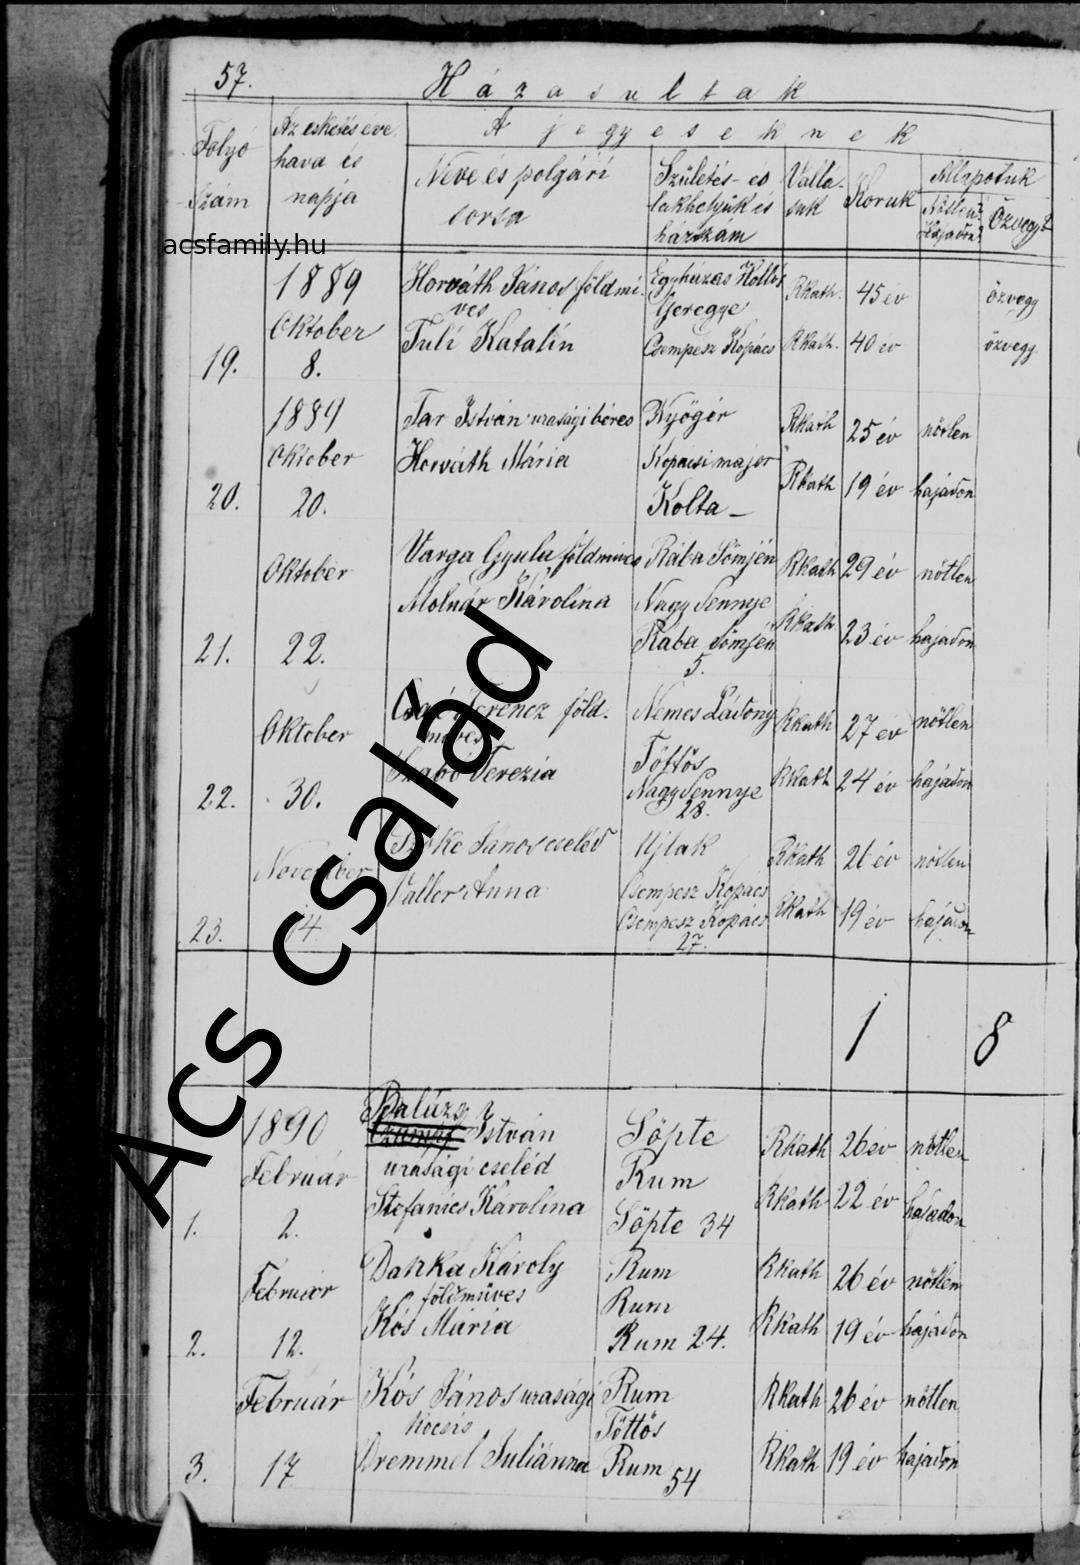 57. Házasultak
Folyó szám Az esketés éve, hava és napja A jegyeseknek
Neve és polgári sorsa Születés- és lakhelyük és házszám Vallásuk Koruk Állapotuk
Nőtlen Hajadon Özvegy
acsfamily.hu
1889 Horváth János földmi- Egyházas Hollós Rkath. 45 év özvegy
ves Geregye
Oktober Tuli Katalin Csempesz Kopács Rkath. 40 év özvegy
19. 8.
1889 Tar István urasági béres Nyögér Rkath 25 év nőtlen
Oktober Horváth Mária Kopácsi major Rkath 19 év hajadon
20. 20. Kolta -
Oktober Varga Gyula földműves Rába Sömjén Rkath 29 év nőtlen
Molnár Károlina Nagy Sennye Rkath 23 év hajadon
21. 22. Rába Sömjén
5.
Oktober Ferencz föld- Nemes Ládony Rkath 27 év nőtlen
műves Töttös
Szabó Terezia Nagy Sennye Rkath 24 év hajadon
22. 30. 28.
November János cseléd Ujlak Rkath 26 év nőtlen
Anna Csempesz Kopács Rkath 19 év hajadon
23. 14. Csempesz Kopács
27.
Acs család
1 8
1890 István Söpte Rkath 26 év nőtlen
Február urasági cseléd Rum
Stefanics Károlina Söpte 34 Rkath 22 év hajadon
1. 2.
Február Danka Károly Rum Rkath 26 év nőtlen
földműves Rum
2. 12. Kós Mária Rum 24. Rkath 19 év hajadon
Február Kós János urasági Rum Rkath 26 év nőtlen
kocsis Töttös
3. 17 Dremmel Juliánna Rum 54 Rkath 19 év hajadon